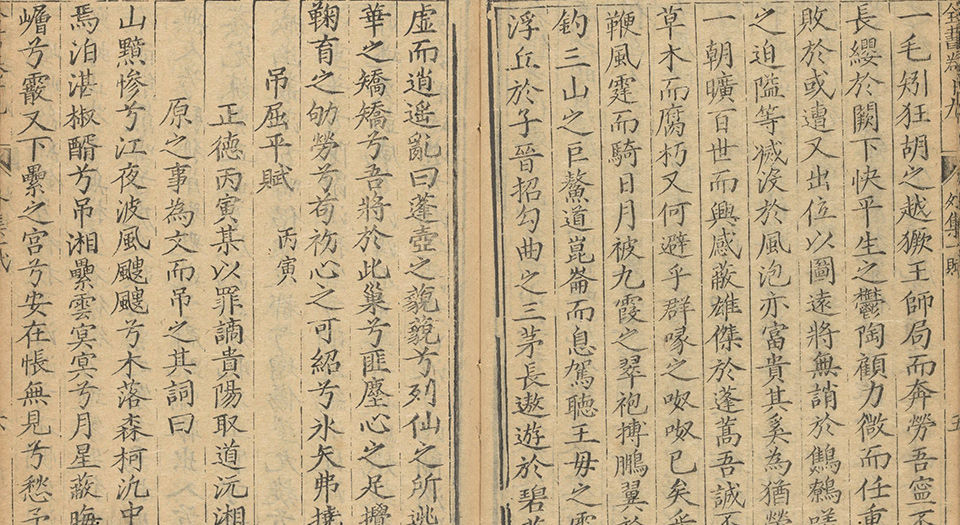 一毛矧狂胡之越獗王師局而奔勞吾寧
長纓於闕下快平生之鬱陶顧力微而任重
敗於或遭又出位以圖遠將無誚於鷦鷯
之迫隘等滅沒於風泡亦富貴其奚為猶榮
一朝曠百世而興感蔽雄傑於蓬蒿吾誠不
草木而腐朽又何避乎群喙之呶呶已矣乎
鞭風霆而騎日月被九霞之翠袍摶鵬翼於
釣三山之巨鰲道崑崙而息駕聽王母之雲
浮丘於子晉招勾曲之三茅長遨遊於碧
虛而逍遙亂曰蓬壺之藐藐兮列仙之所逃
華之矯矯兮吾將於此巢兮匪塵心之足攪
鞠育之劬勞兮苟初心之可紹兮永矢弗撓
吊屈平賦 丙寅
正德丙寅某以罪謫貴陽取道沅湘
原之事為文而吊之其詞曰
山黯慘兮江夜波風颼颼兮木落森柯汎中
焉泊湛椒醑兮吊湘纍雲冥冥兮月星蔽晦
嶒兮霰又下纍之宮兮安在悵無見兮愁予